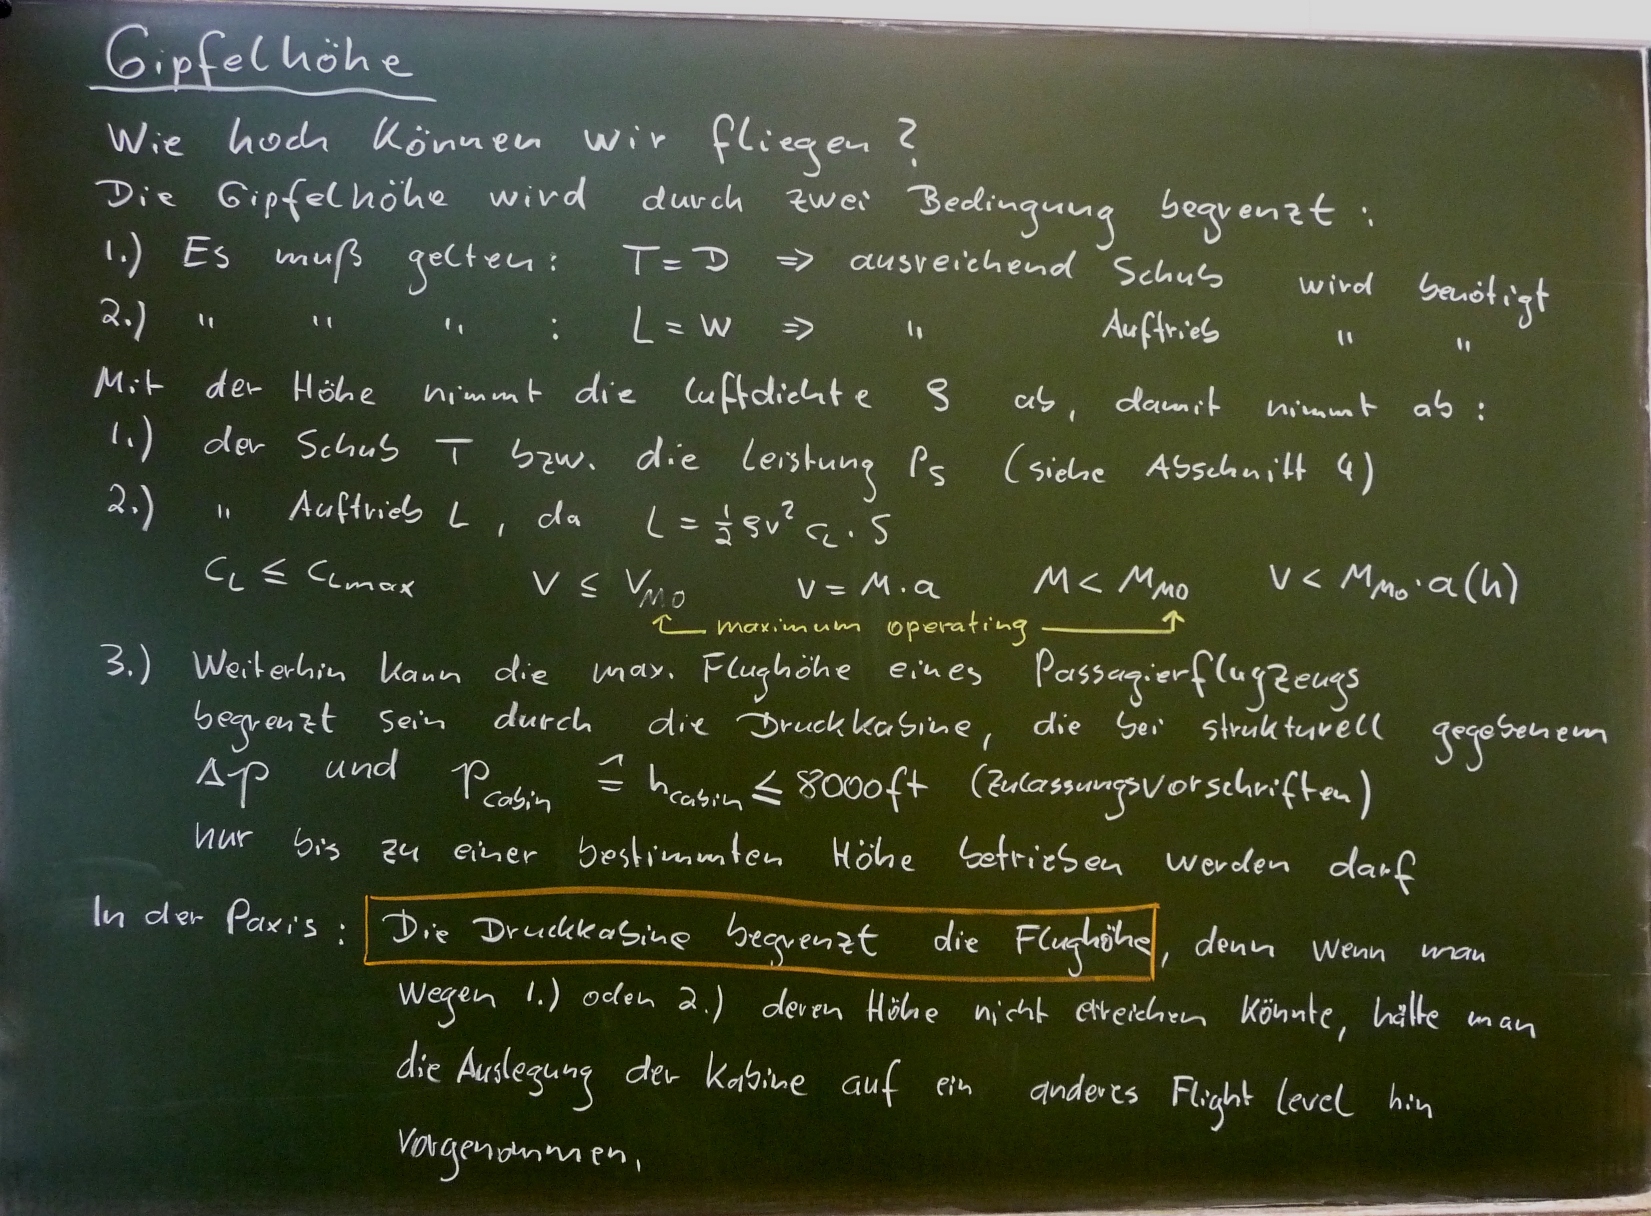 Gipfelhöhe
Wie hoch können wir fliegen?
Die Gipfelhöhe wird durch zwei Bedingung begrenzt:
1.) Es muß gelten: T = D ⇒ ausreichend Schub wird benötigt
2.) " " " : L = W ⇒ " Auftrieb " "
Mit der Höhe nimmt die Luftdichte ρ ab, damit nimmt ab:
1.) der Schub T bzw. die Leistung PS (siehe Abschnitt 4)
2.) " Auftrieb L, da L = ½ρv² cL · S
CL ≤ CLmax V ≤ VMO v = M · a M < MMO V < MMO · a(h)
↑ maximum operating ↑
3.) Weiterhin kann die max. Flughöhe eines Passagierflugzeugs
begrenzt sein durch die Druckkabine, die bei strukturell gegebenem
Δp und pcabin ≙ hcabin ≤ 8000ft (Zulassungsvorschriften)
nur bis zu einer bestimmten Höhe betrieben werden darf
In der Paxis: Die Druckkabine begrenzt die Flughöhe, denn wenn man
wegen 1.) oden 2.) deren Höhe nicht erreichen könnte, hätte man
die Auslegung der Kabine auf ein anderes Flight Level hin
vorgenommen.